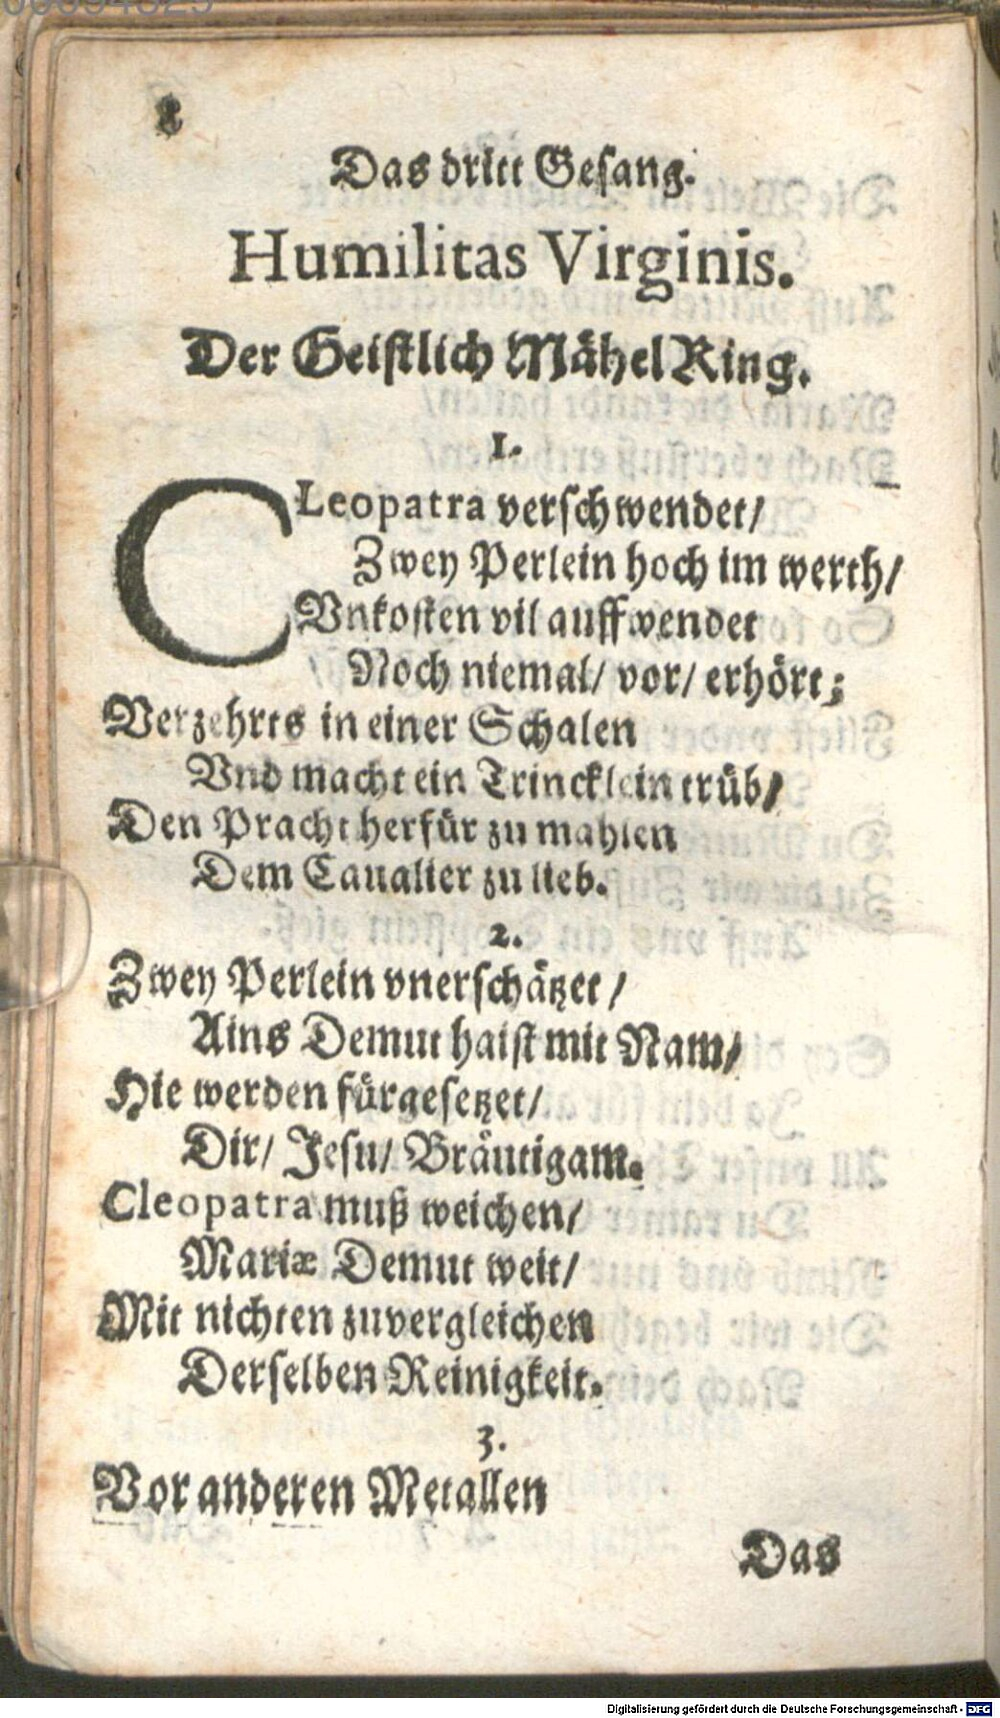 8
Das dritt Gesang.
Humilitas Virginis.
Der Geistlich Mähel Ring.
1.
CLeopatra verschwendet/
Zwey Perlein hoch im werth/
Vnkosten vil auffwendet
Noch niemal/ vor/ erhört;
Verzehrts in einer Schalen
Vnd macht ein Trincklein trüb/
Den Pracht herfür zu mahlen
Dem Caualier zu lieb.
2.
Zwey Perlein vnerschätzet/
Ains Demut haist mit Nam/
Hie werden fürgesetzet/
Dir/ Jesu/ Bräutigam.
Cleopatra muß weichen/
Mariæ Demut weit/
Mit nichten zuvergleichen
Derselben Reinigkeit.
3.
Vor anderen Metallen
Das
Digitalisierung gefördert durch die Deutsche Forschungsgemeinschaft - DFG